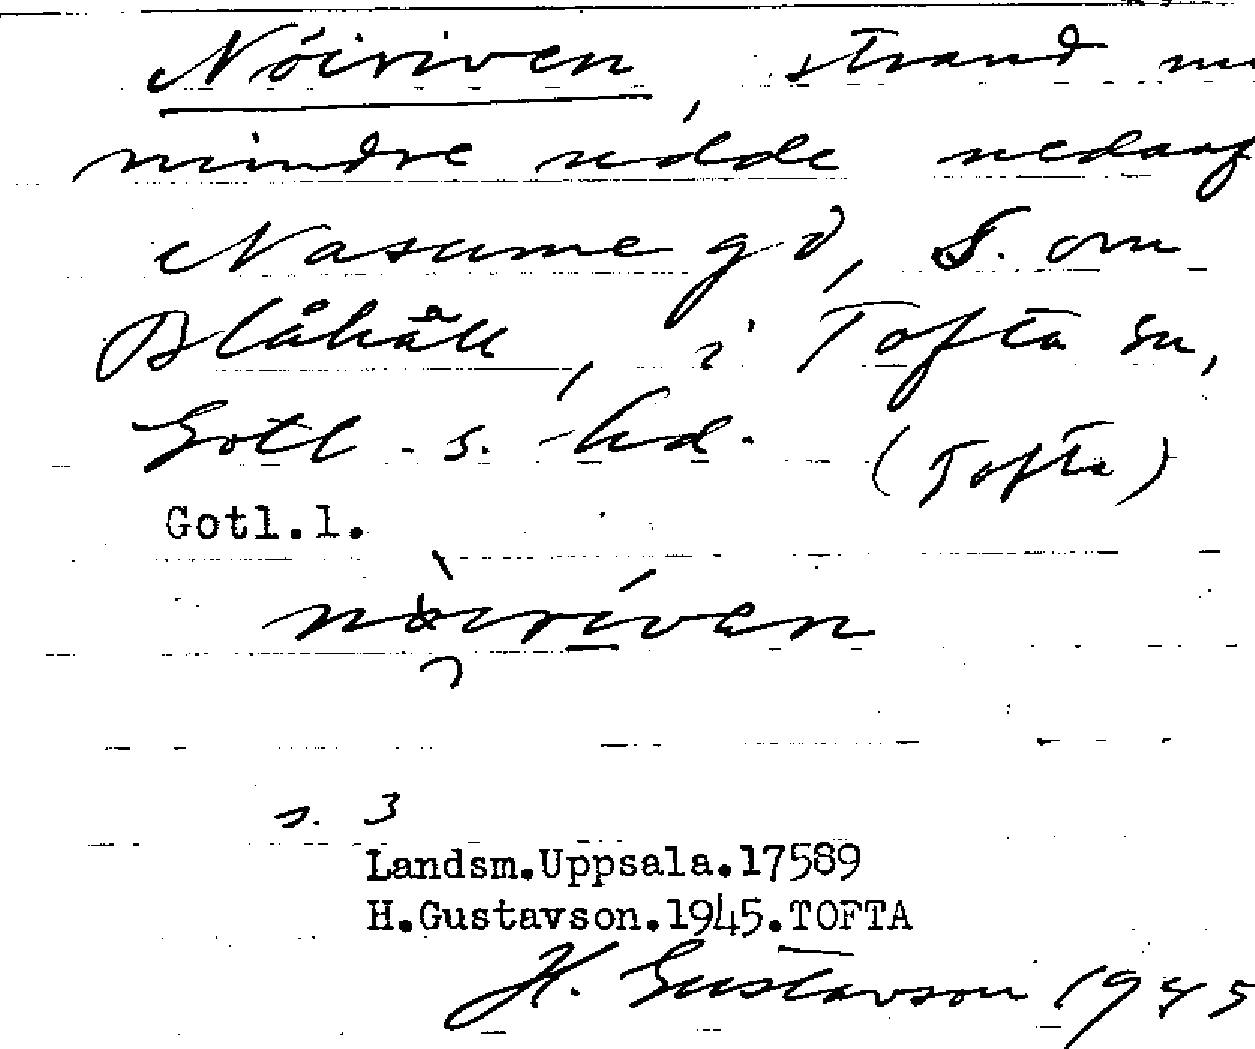 Nöiriven, strand m
mindre udde nedanf
Nasume gd, S. om
Blåhäll, i Tofta sn,
Gotl. s. hd. (Tofta)
Gotl.l.
s. 3
Landsm.Uppsala.17589
H.Gustavson.1945.TOFTA
H. Gustavson 1945